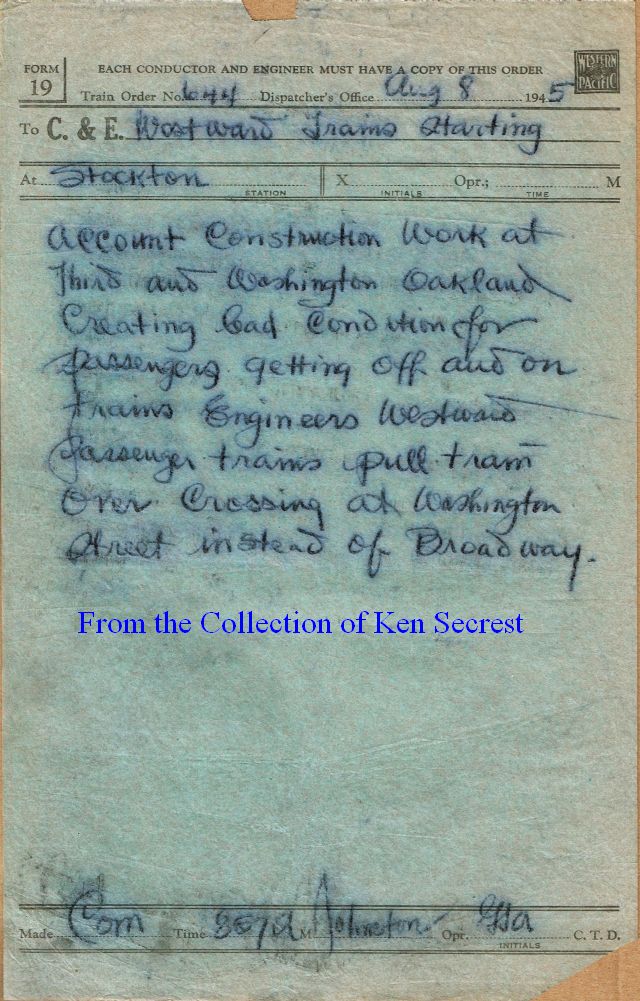 FORM 19
EACH CONDUCTOR AND ENGINEER MUST HAVE A COPY OF THIS ORDER
WESTERN PACIFIC
Train Order No. 644 Dispatcher's Office Aug 8 1945
To C. & E. Westward Trains Starting
At Stockton STATION X INITIALS Opr.; TIME M
Account Construction Work at
Third and Washington Oakland
Creating bad condition for
passengers getting off and on
trains Engineers Westward
passenger trains pull train
over Crossing at Washington
Street instead of Broadway.
From the Collection of Ken Secrest
Made Com Time M Johnston Opr. INITIALS C. T. D.